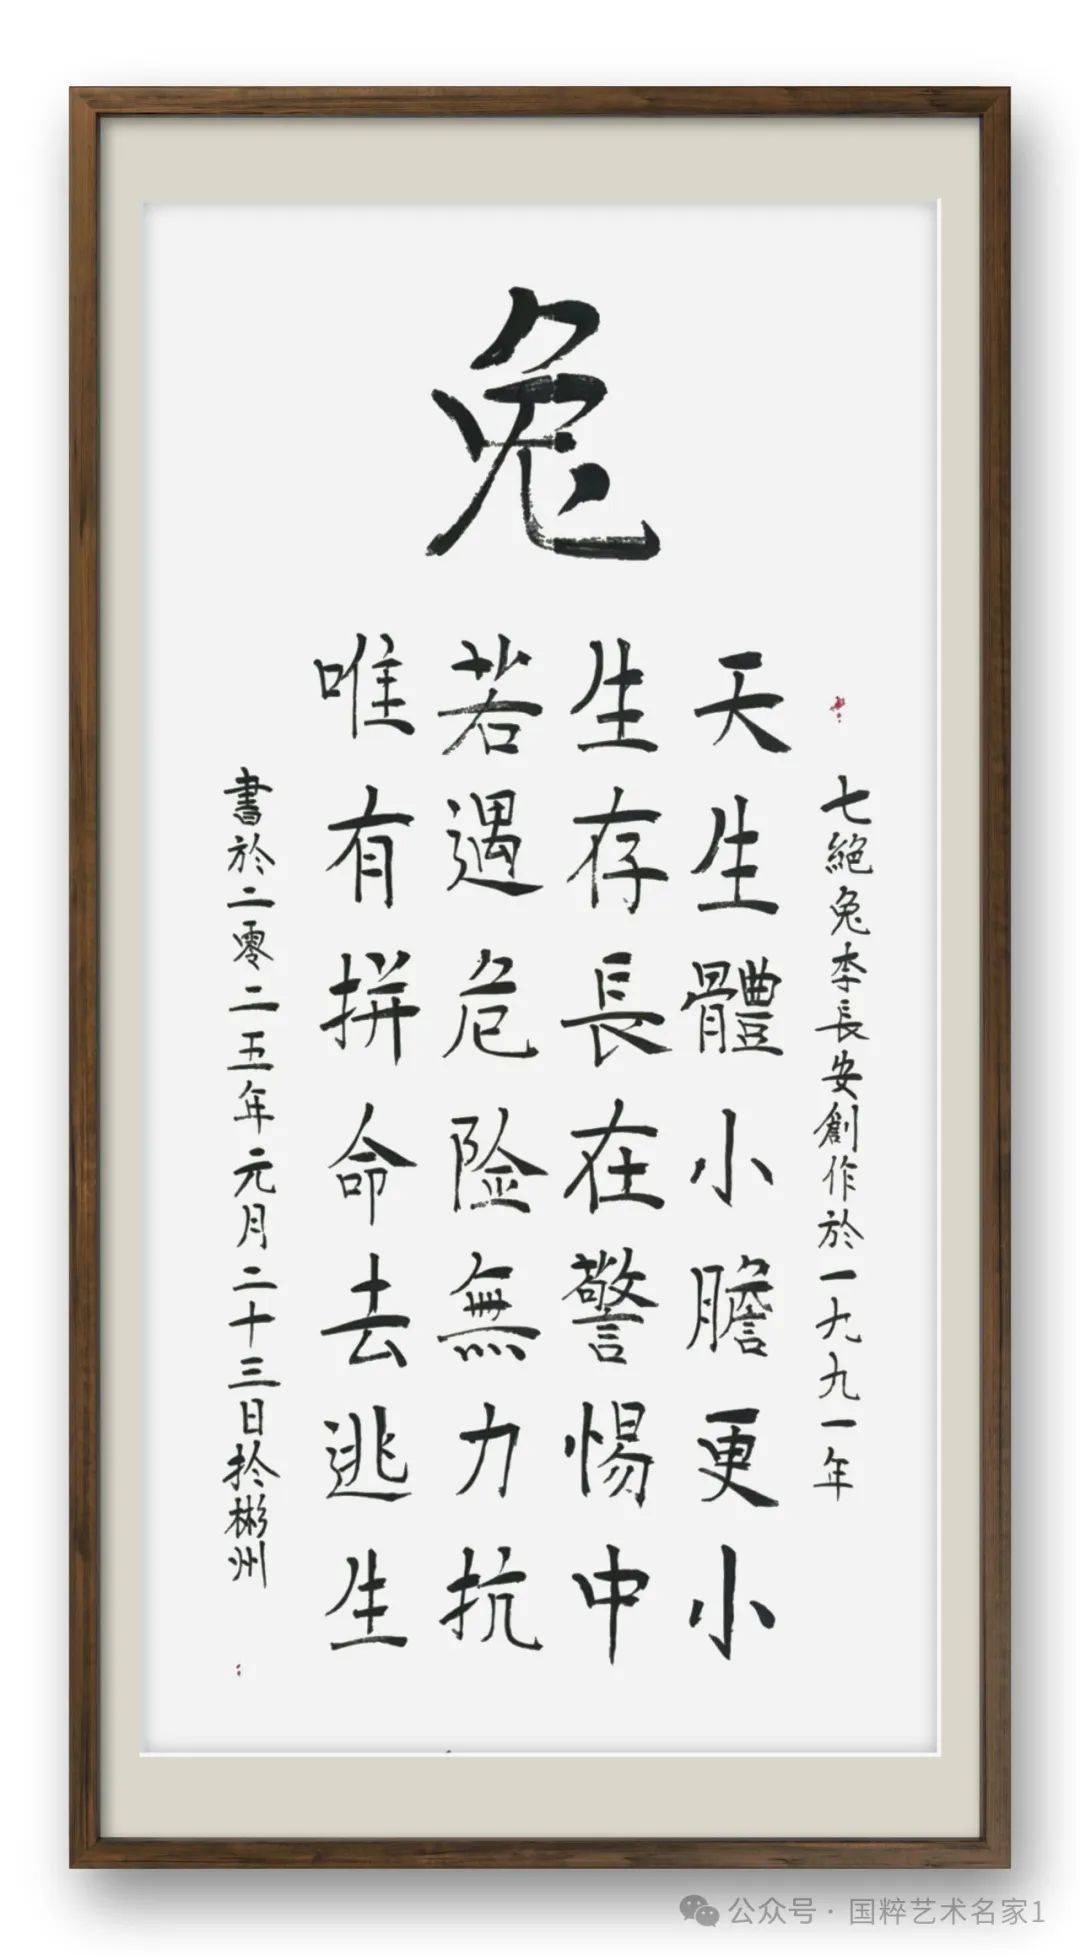 兔
七絕兔李長安創作於一九九一年
天生體小膽更小
生存長在警惕中
若遇危险無力抗
唯有拼命去逃生
書於二零二五年元月二十三日於彬州
公众号 · 国粹艺术名家1